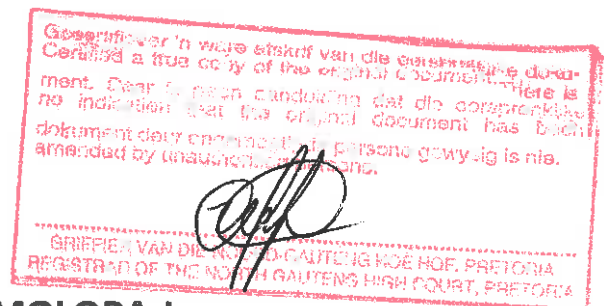 Gesertifiseer 'n ware afskrif van die oorspronklike doku-
Certified a true copy of the original document. There is
ment. Daar is geen aanduiding dat die oorspronklike
no indication that the original document has been
dokument deur persone gewysig is nie.
amended by unauthorised persons.
GRIFFIER VAN DIE NOORD-GAUTENG HOË HOF, PRETORIA
REGISTRAR OF THE NORTH GAUTENG HIGH COURT, PRETORIA